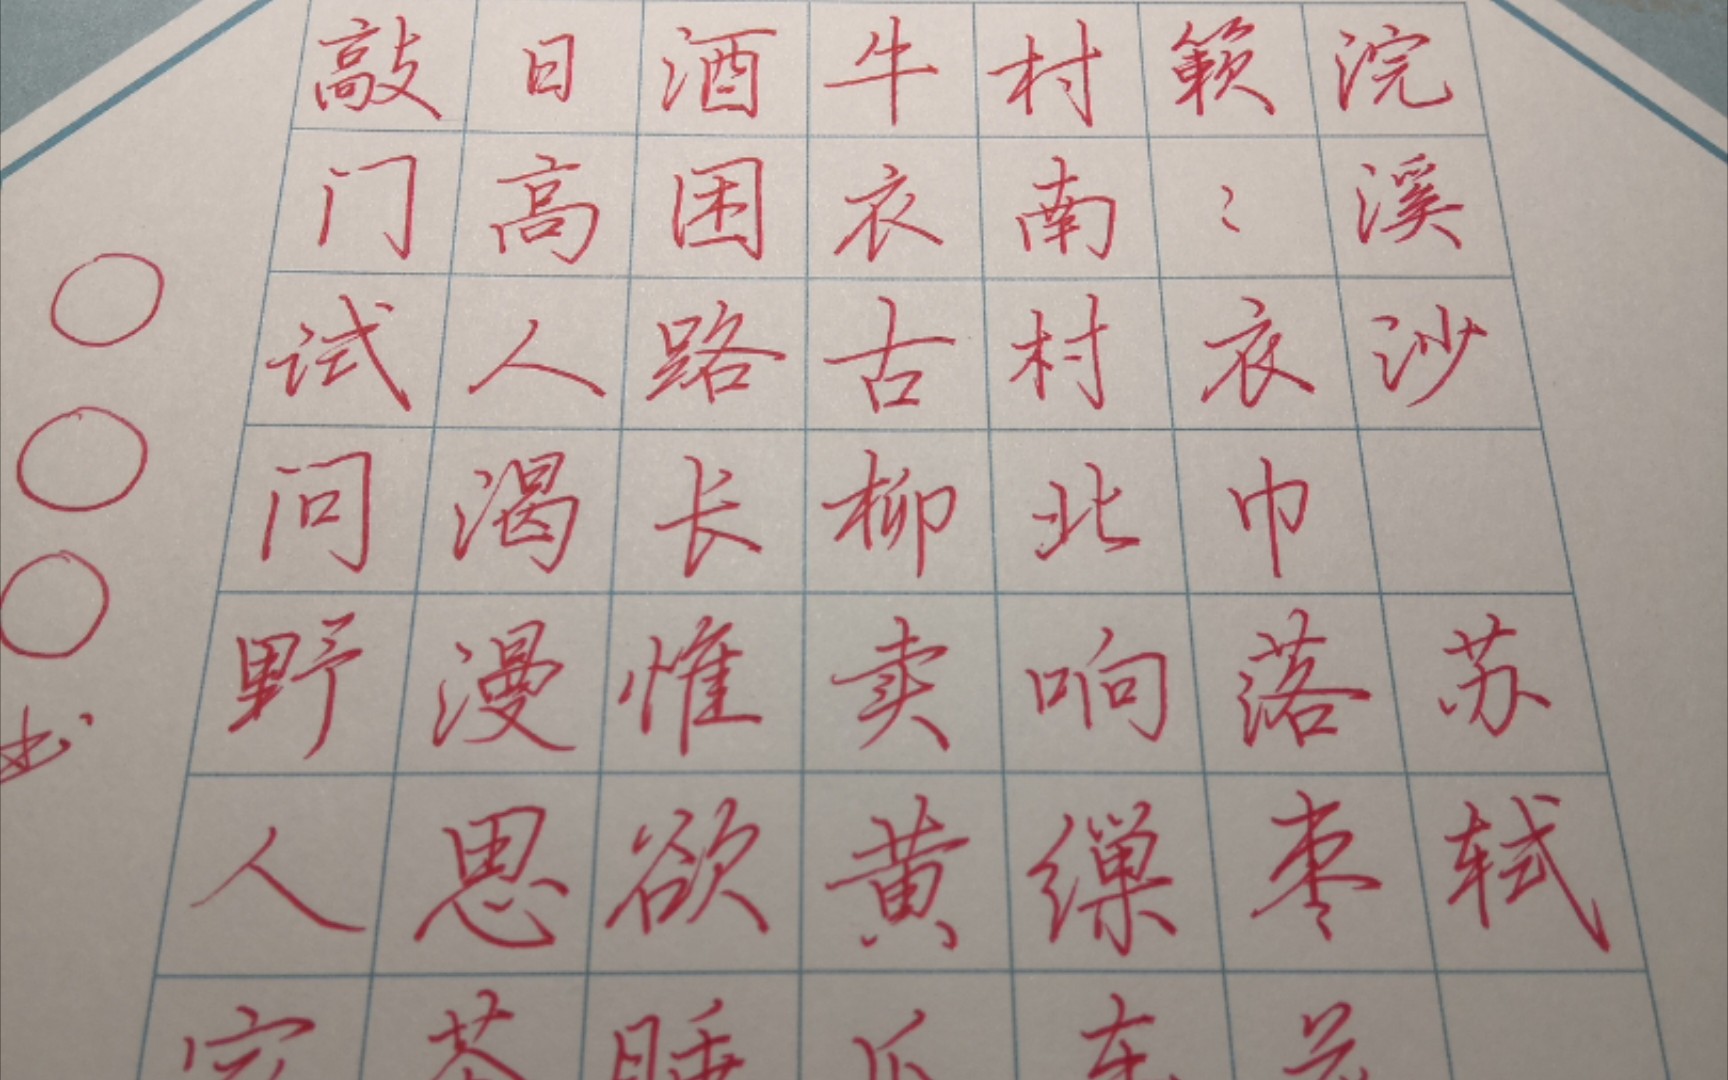 浣溪沙 苏轼
簌〻衣巾落枣花
村南村北响缫车
牛衣古柳卖黄瓜
酒困路长惟欲睡
日高人渴漫思茶
敲门试问野人家
○○○书